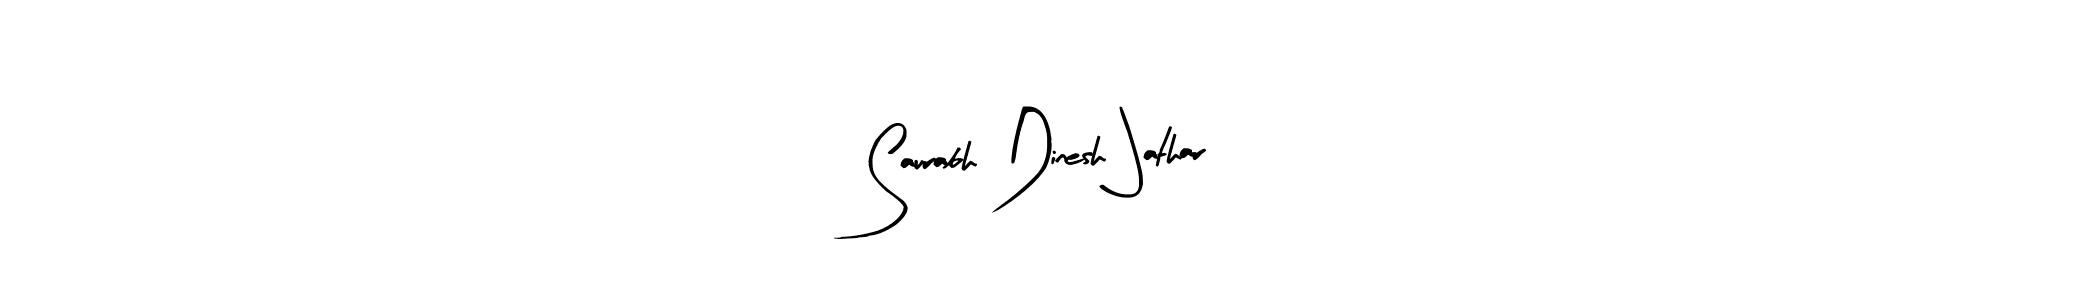 Saurabh Dinesh Jathar